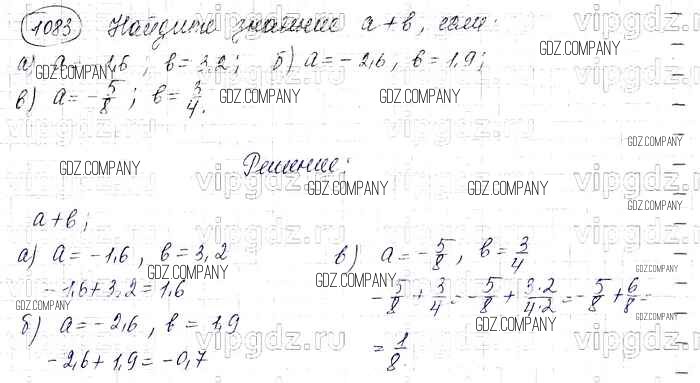 1083 Найдите значение a+b, если:
а) a = -1,6; b = 3,2; б) a = -2,6, b = 1,9;
в) a = -5/8; b = 3/4.
Решение:
a+b;
а) a = -1,6, b = 3,2
-1,6+3,2=1,6
б) a = -2,6, b = 1,9
-2,6+1,9=-0,7
в) a = -5/8, b = 3/4
-5/8 + 3/4 = -5/8 + 3·2/4·2 = -5/8 + 6/8 =
= 1/8.
GDZ.COMPANY
vipgdz.ru